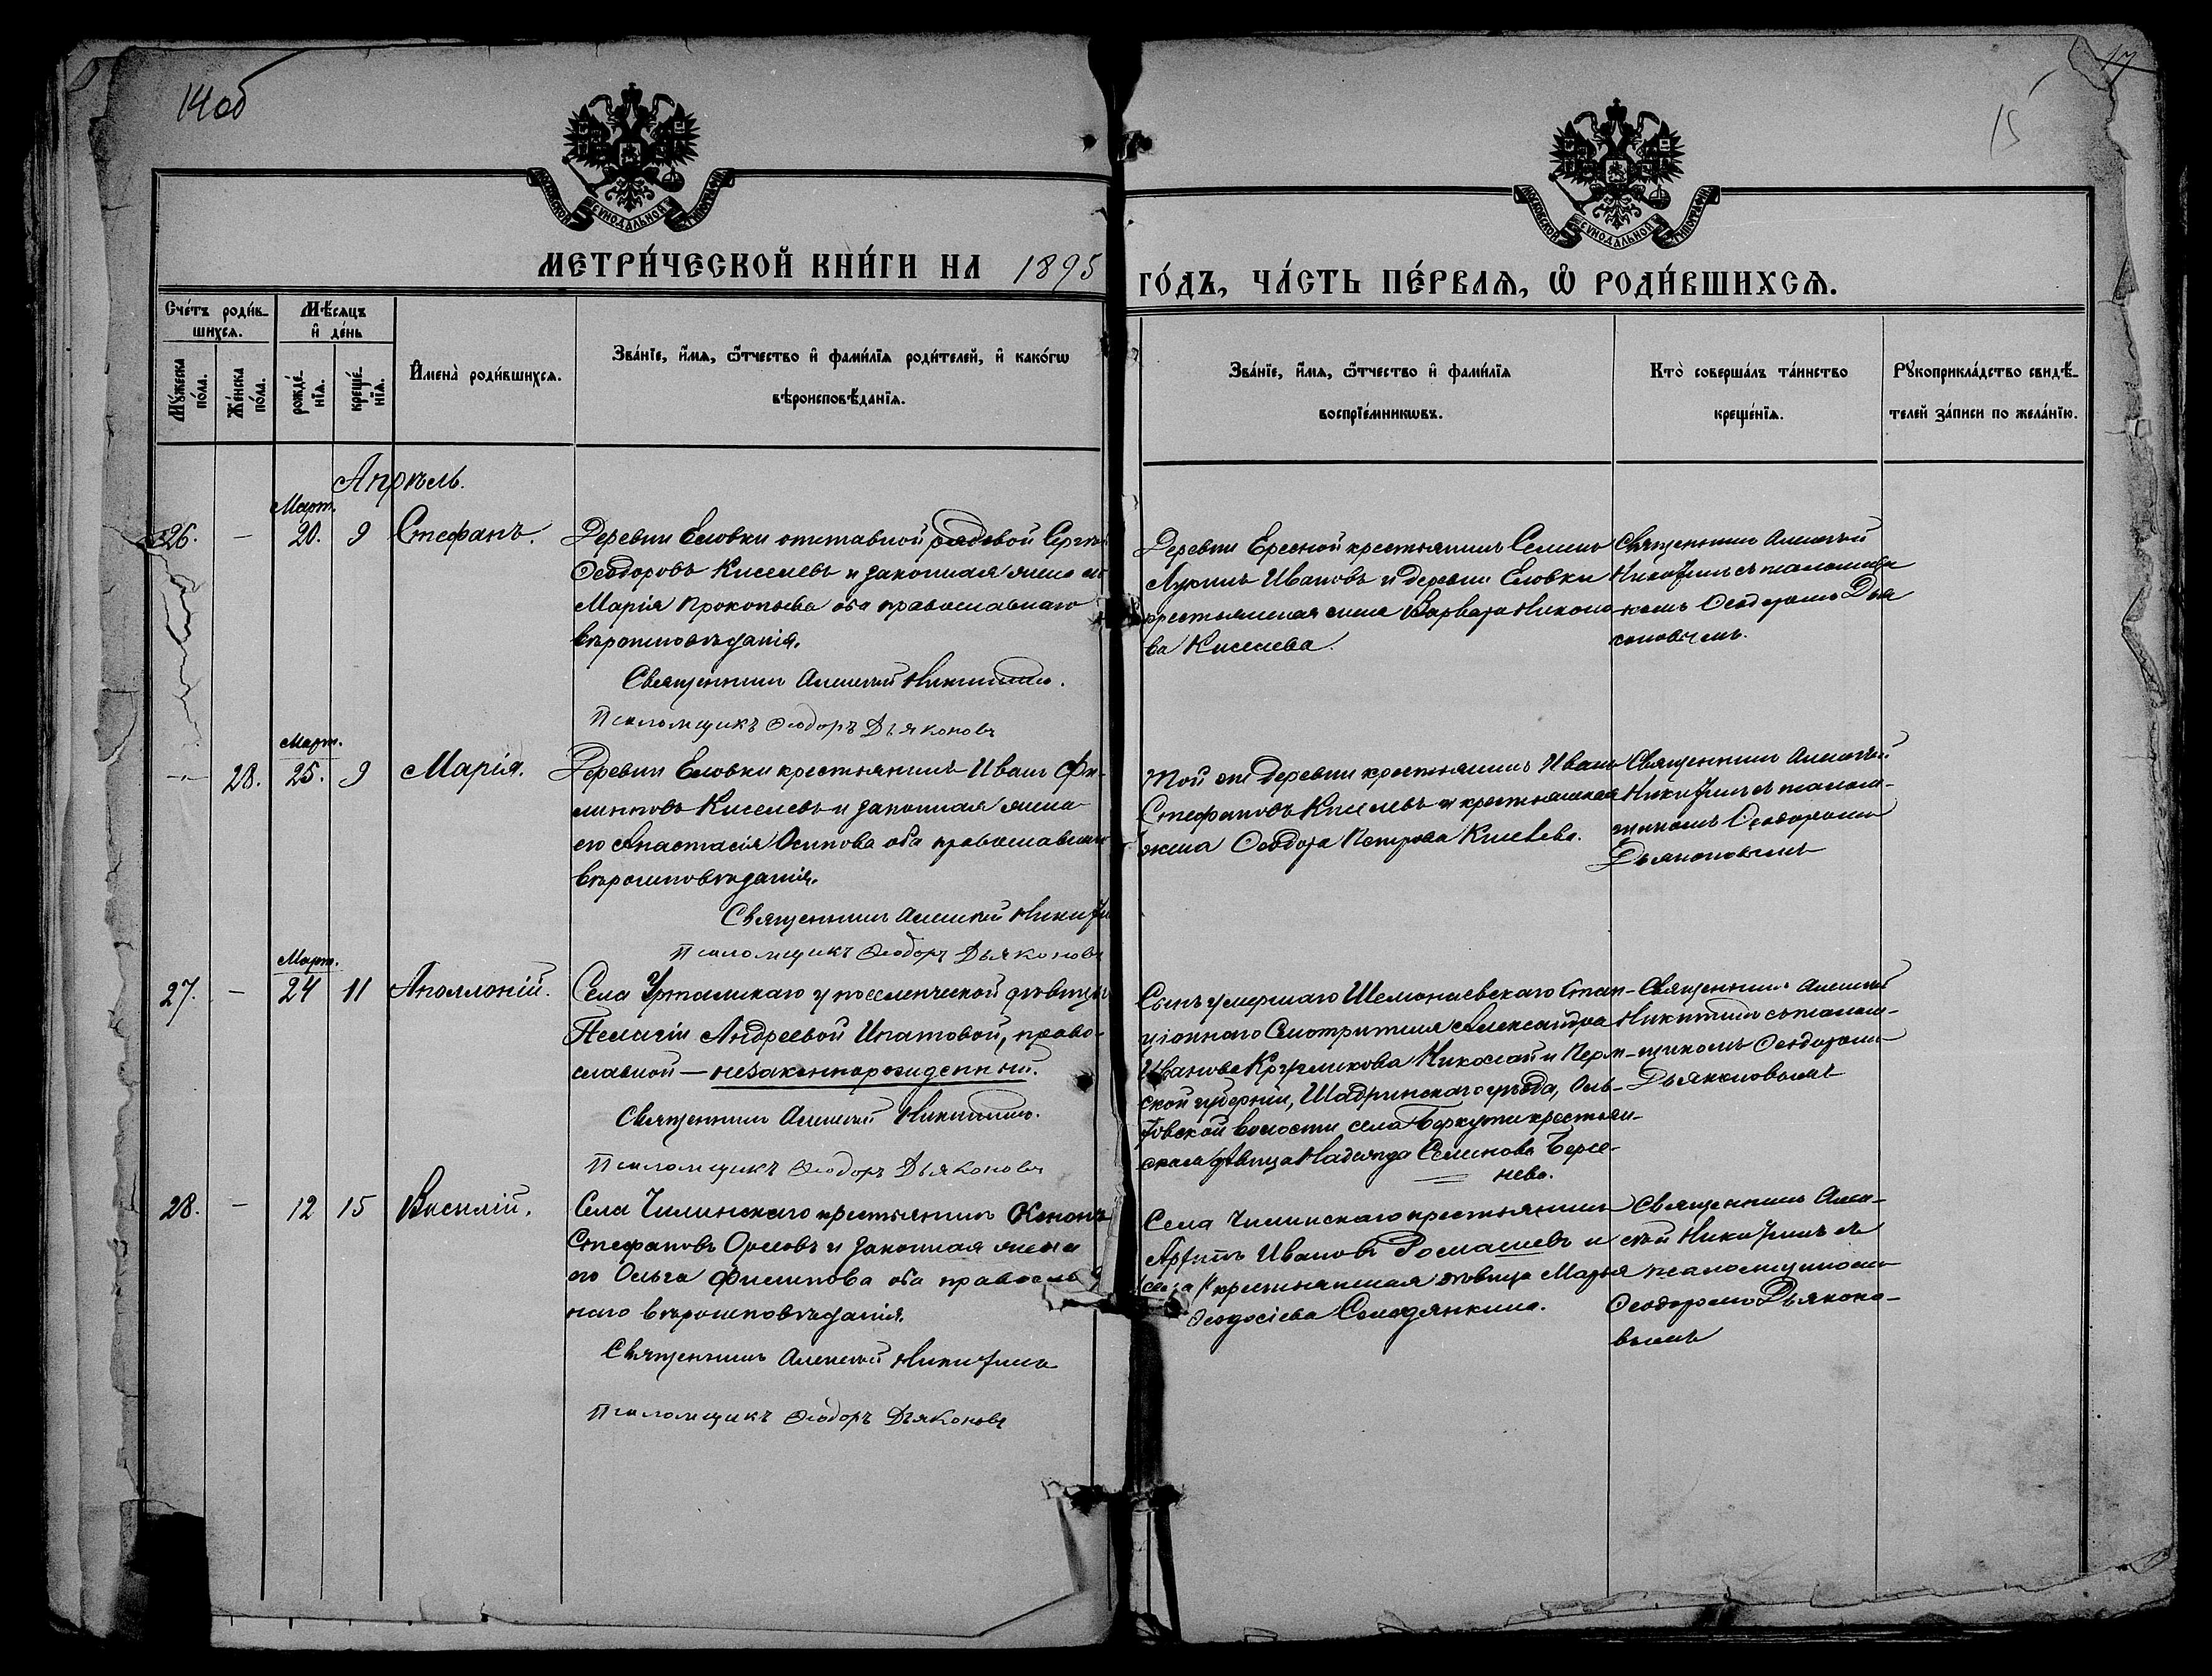 14 об
17
15
МОСКОВСКОЙ СѴНОДАЛЬНОЙ ТИПОГРАФІИ
МОСКОВСКОЙ СѴНОДАЛЬНОЙ ТИПОГРАФІИ
МЕТРИ́ЧЕСКОЙ КНИ́ГИ НА 1895
ГО́ДЪ, ЧА́СТЬ ПЕ́РВАЯ, Ѿ РОДИ́ВШИХСЯ.
Сче́тъ роди́в-
шихся.
Му́жеска по́ла.
Же́нска по́ла.
Мѣ́сяцъ
и҆ де́нь
рожде́-
нїя.
креще́-
нїя.
И҆мена̀ роди́вшихся.
Зва́нїе, и҆́мя, ѻ҆́тчество и҆ фами́лїя роди́телей, и҆ како́гѡ
вѣроисповѣ́данїя.
Зва́нїе, и҆́мя, ѻ҆́тчество и҆ фами́лїя
воспрїе́мникѡвъ.
Кто̀ соверша́лъ та́инство
креще́нїя.
Рꙋкоприкла́дство свидѣ́-
телей за́писи по жела́нїю.
Апрѣль.
Март.
26. - 20. 9 Стефанъ.
Деревни Еловки отставной рядовой Сергѣй
Ѳеодоровъ Киселевъ и законная жена его
Марія Прокопьева оба православнаго
вѣроисповѣданія.
Священникъ Алексій Никитинъ.
Псаломщикъ Ѳеодоръ Дьяконовъ
Деревни Ересной крестьянинъ Семенъ
Ивановъ и деревни Еловки
крестьянская жена Варвара Никоно-
ва Киселева.
Священникъ Алексій
Никитинъ съ псаломщи-
комъ Ѳеодоромъ Дья
коновымъ.
Март.
- 28. 25. 9 Марія.
Деревни Еловки крестьянинъ Иванъ Фи-
липповъ Киселевъ и законная жена
его Анастасія Осипова оба православнаго
вѣроисповѣданія.
Священникъ Алексій Никитин
Псаломщикъ Ѳеодоръ Дьяконовъ
Той же деревни крестьянинъ Иванъ
Стефановъ Киселевъ и крестьянская
жена Ѳеодора Петрова Киселева.
Священникъ Алексій
Никитинъ съ псалом-
щикомъ Ѳеодоромъ
Дьяконовымъ
Март.
27. - 24 11 Аполлоній.
Села Уртамскаго у поселенческой дѣвицы
Пелагіи Андреевой Ипатовой, право-
славной — незаконнорожденный.
Священникъ Алексій Никитинъ.
Псаломщикъ Ѳеодоръ Дьяконовъ
Сынъ умершаго Шемонаевскаго Стан-
ціоннаго Смотрителя Александра
Иванова Николай и Перм-
ской губерніи, Шадринскаго уѣзда, Оль-
ховской волости села крестьян-
ская дѣвица Надежда Семенова Берсе-
нева.
Священникъ Алексій
Никитинъ съ псалом-
щикомъ Ѳеодоромъ
Дьяконовымъ
28. - 12 15 Василій.
Села Чилинскаго крестьянинъ Ксенонъ
Стефановъ Орловъ и законная жена
его Ольга Филипова оба православ
наго вѣроисповѣданія.
Священникъ Алексій Никитинъ
Псаломщикъ Ѳеодоръ Дьяконовъ
Села Чилинскаго крестьянинъ
Иванов Ромашевъ и
крестьянская дѣвица Марья
Ѳеодосіева
Священникъ Алек-
сѣй Никитинъ съ
псаломщикомъ
Ѳеодоромъ Дьяконо-
вымъ